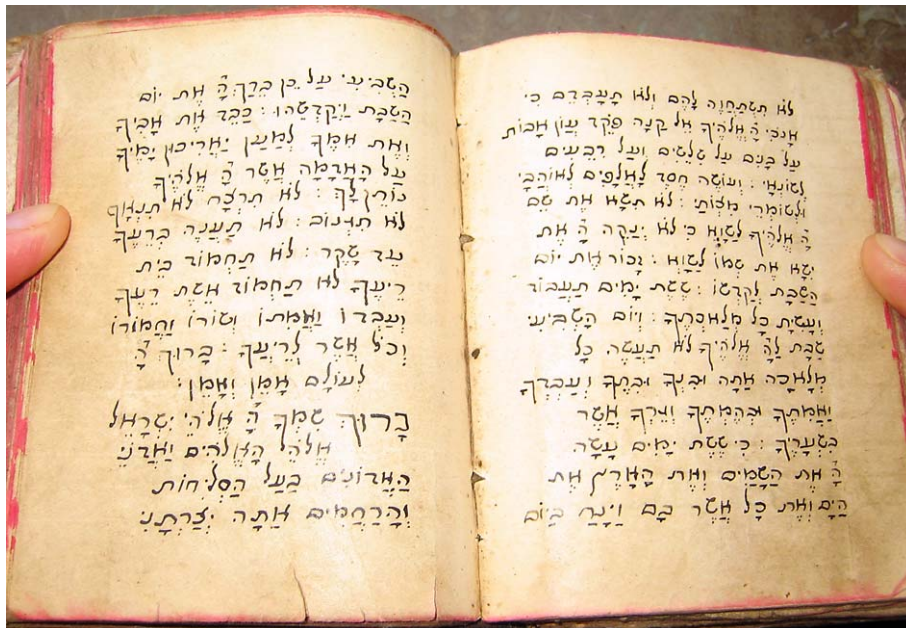 לֹא תִשְׁתַּחֲוֶה לָהֶם וְלֹא תָעָבְדֵם כִּי
אָנֹכִי הָ׳ אֱלֹהֶיךָ אֵל קַנָּה פֹּקֵד עֲוֺן אָבוֹת
עַל בָּנִים עַל שִׁלֵּשִׁים וְעַל רִבֵּעִים
לְשׂוֹנְאָי : וְעוֹשֶׂה חֶסֶד לָאֲלָפִים לְאוֹהֲבַי
וּלְשׁוֹמְרֵי מִצְוֺתַי : לֹא תִשָּׂא אֶת שֵׁם
הָ׳ אֱלֹהֶיךָ לַשָּׁוְא כִּי לֹא יְנַקֶּה הָ׳ אֶת
יִשָּׂא אֶת שְׁמוֹ לַשָּׁוְא : זָכוֹר אֶת יוֹם
הַשַּׁבָּת לְקַדְּשׁוֹ : שֵׁשֶׁת יָמִים תַּעֲבוֹד
וְעָשִׂיתָ כָל מְלַאכְתֶּךָ : וְיוֹם הַשְּׁבִיעִי
שַׁבָּת לַהָ׳ אֱלֹהֶיךָ לֹא תַעֲשֶׂה כָל
מְלָאכָה אַתָּה וּבִנְךָ וּבִתֶּךָ וְעַבְדְּךָ
וַאֲמָתְךָ וּבְהֶמְתֶּךָ וְגֵרְךָ אֲשֶׁר
בִּשְׁעָרֶיךָ : כִּי שֵׁשֶׁת יָמִים עָשָׂה
הָ׳ אֶת הַשָּׁמַיִם וְאֶת הָאָרֶץ אֶת
הַיָּם וְאֶת כָּל אֲשֶׁר בָּם וַיָּנַח בַּיּוֹם
הַשְּׁבִיעִי עַל כֵּן בֵּרַךְ הָ׳ אֶת יוֹם
הַשַּׁבָּת וַיְקַדְּשֵׁהוּ : כַּבֵּד אֶת אָבִיךָ
וְאֶת אִמֶּךָ לְמַעַן יַאֲרִיכוּן יָמֶיךָ
עַל הָאֲדָמָה אֲשֶׁר הָ׳ אֱלֹהֶיךָ
נוֹתֵן לָךְ : לֹא תִרְצָח לֹא תִנְאָוף
לֹא תִגְנוֹב : לֹא תַעֲנֶה בְרֵעֶךָ
עֵד שָׁקֶר : לֹא תַחְמוֹד בֵּית
רֵיעֶךָ לֹא תַחְמוֹד אֵשֶׁת רֵעֶךָ
וְעַבְדּוֹ וַאֲמָתוֹ וְשׁוֹרוֹ וַחֲמוֹרוֹ
וְכֹל אֲשֶׁר לְרֵיעֶךָ : בָּרוּךְ הָ׳
לְעוֹלָם אָמֵן וְאָמֵן :
בָּרוּךְ שִׁמְךָ הָ׳ אֱלֹהֵי יִשְׂרָאֵל
אֱלֹהֵי הָאֱלֹהִים וַאֲדֹנֵי
הָאֲדוֹנִים בַּעַל הַסְּלִיחוֹת
וְהָרַחֲמִים אַתָּה יְצַרְתָּנִי